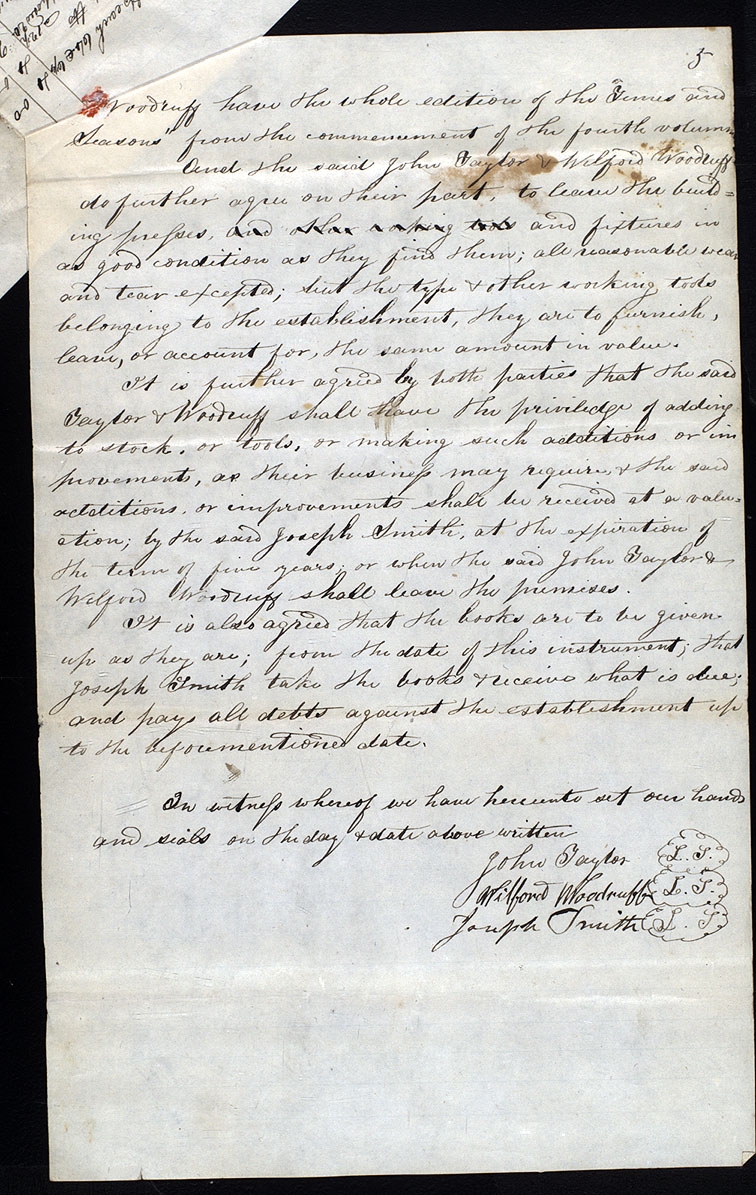 5
Woodruff have the whole edition of the "Times and
Seasons" from the commencement of the fourth volumn
And the said John Taylor & Wilford Woodruff
do further agree on their part, to leave the build=
ing presses, and other working tools and fixtures in
as good condition as they find them; all reasonable wear
and tear excepted; but the type & other working tools
belonging to the establishment, they are to furnish,
leave, or account for, the same amount in value.
It is further agried by both parties that the said
Taylor & Woodruff shall have the priviledge of adding
to stock, or tools, or making such additions or im
provements, as their business may require, & the said
additions, or improvements shall be received at a valu=
ation; by the said Joseph Smith, at the expiration of
the term of five years; or when the said John Taylor &
Wilford Woodruff shall leave the premises.
It is also agreed that the books are to be given
up as they are; from the date of this instrument; that
Joseph Smith take the books & receive what is due;
and pays all debts against the establishment up
to the beforementioned date.
In witness whereof we have hereunto set our hands
and seals on the day & date above written
John Taylor L. S.
Wilford Woodruff L. S.
Joseph Smith L. S